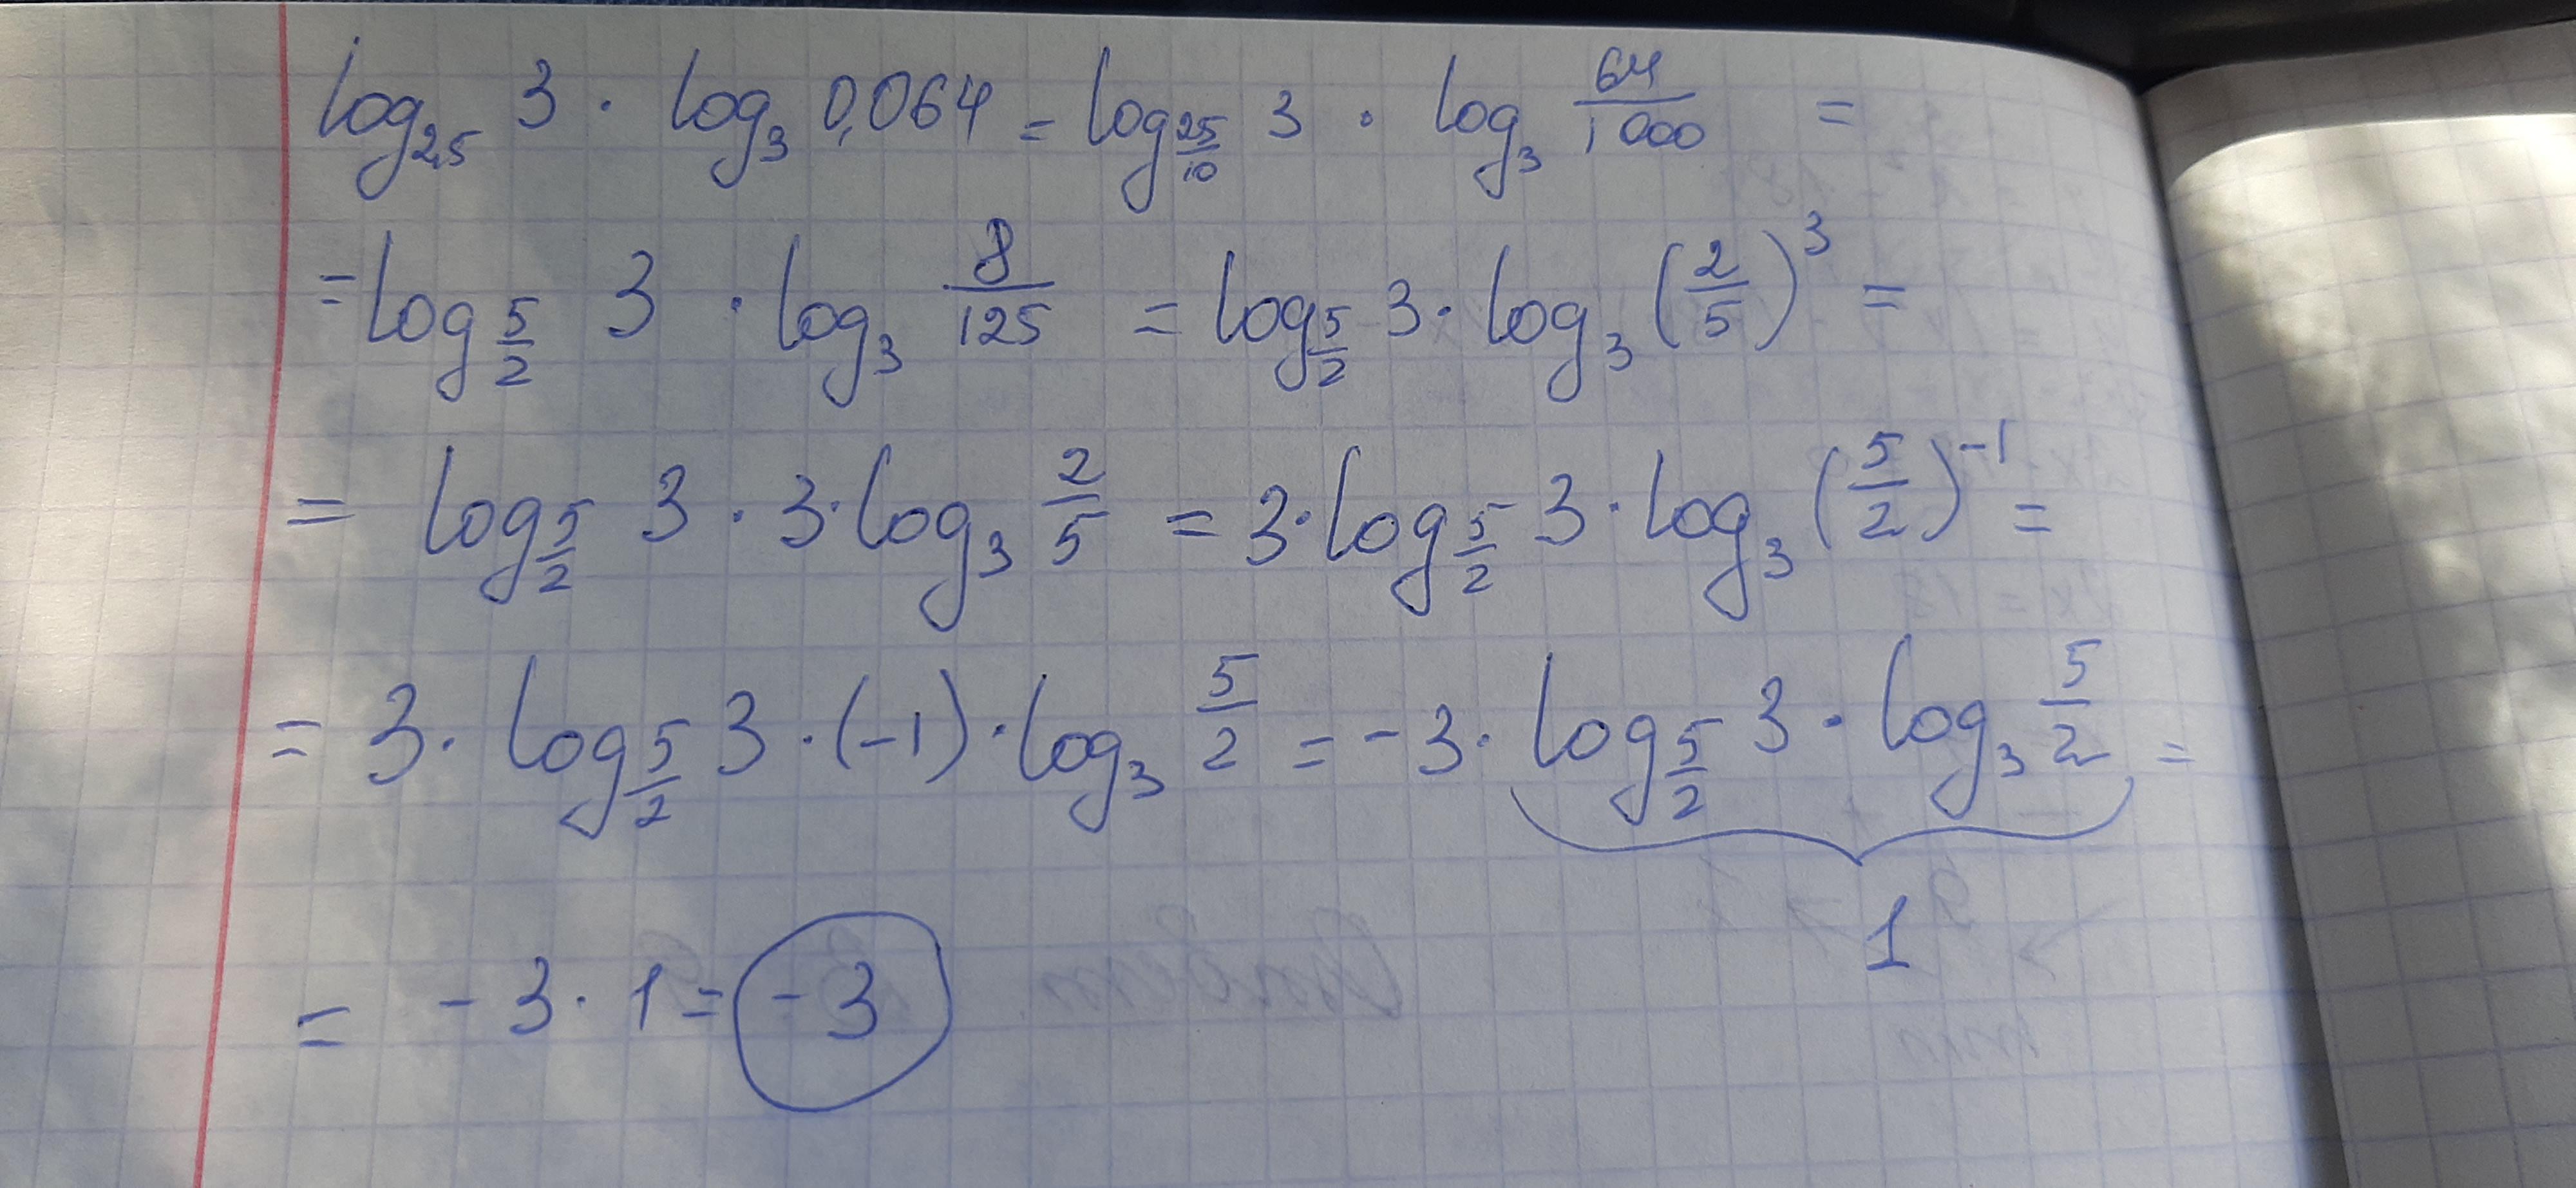 log_{2,5} 3 · log_3 0,064 = log_{25/10} 3 · log_3 64/1000 =
= log_{5/2} 3 · log_3 8/125 = log_{5/2} 3 · log_3 (2/5)^3 =
= log_{5/2} 3 · 3 · log_3 2/5 = 3 · log_{5/2} 3 · log_3 (5/2)^{-1} =
= 3 · log_{5/2} 3 · (-1) · log_3 5/2 = -3 · log_{5/2} 3 · log_3 5/2 =
1
= -3 · 1 = -3